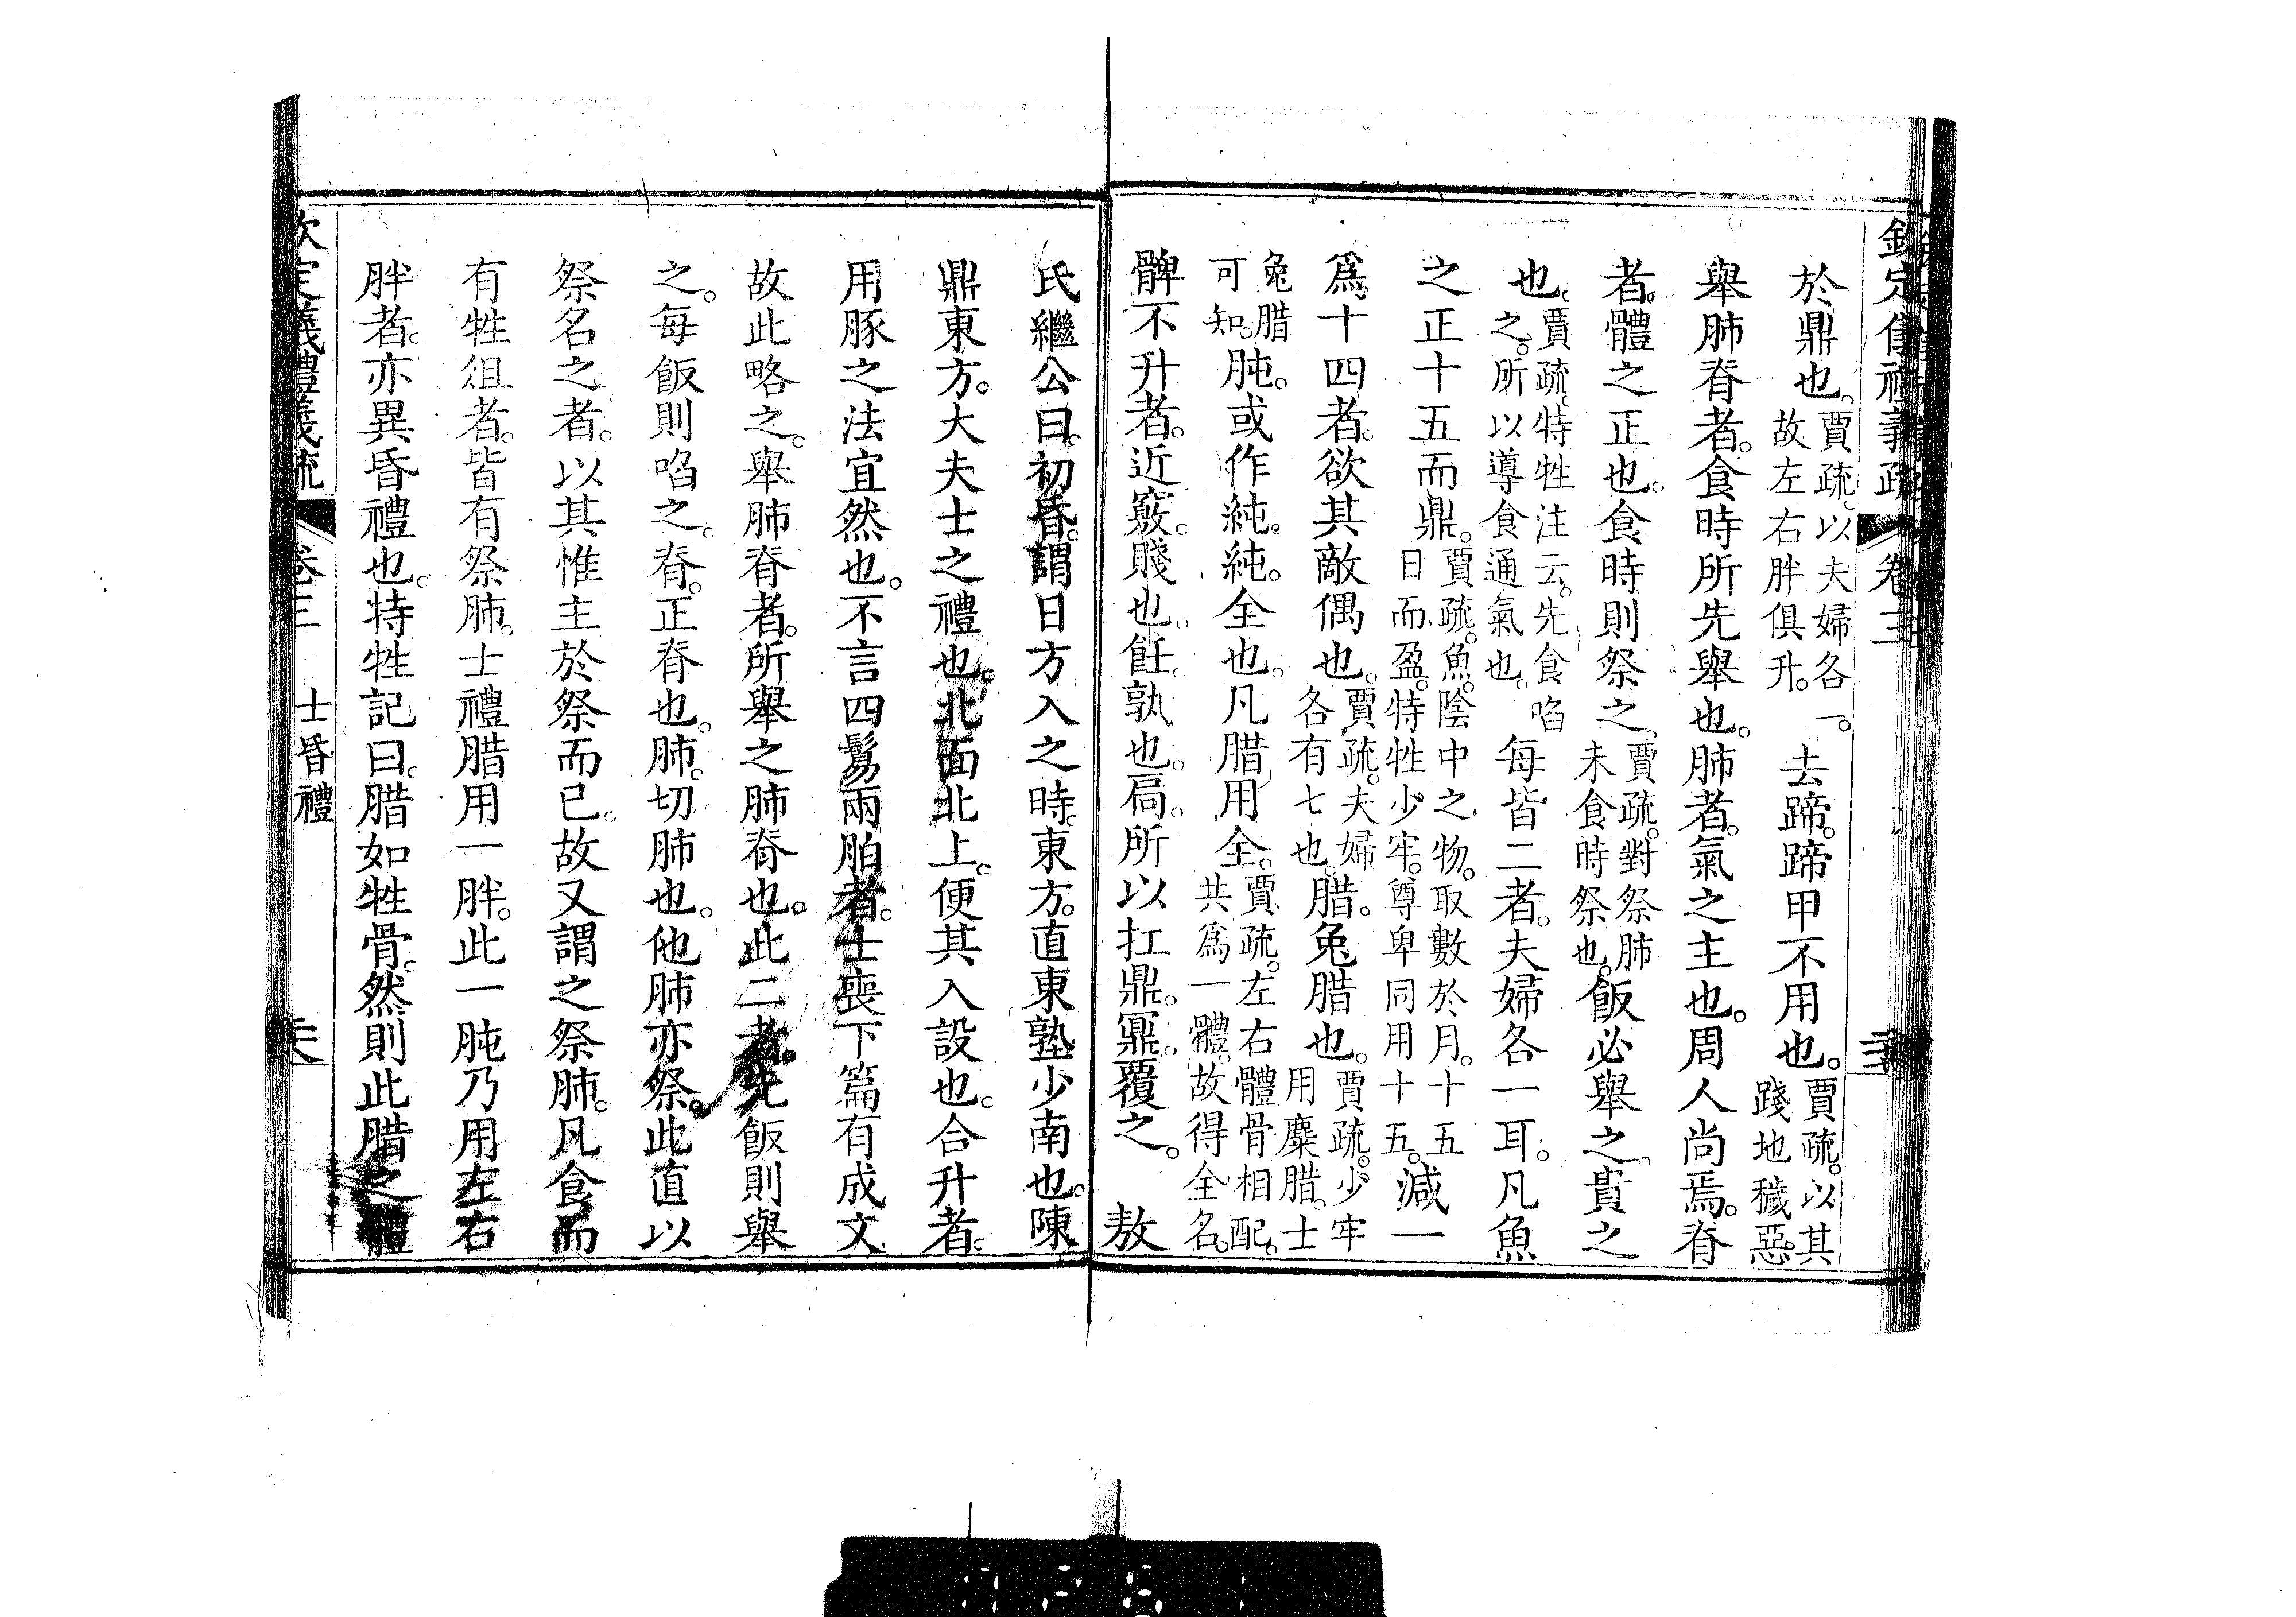 欽定儀禮義疏 卷三
於鼎也。賈疏。以夫婦各一。故左右胖俱升。去蹄。蹄甲不用也。賈疏。以其踐地穢惡。
舉肺脊者。食時所先舉也。肺者。氣之主也。周人尚焉。脊
者。體之正也。食時則祭之。賈疏。對祭肺未食時祭也。飯必舉之。貴之
也。賈疏。特牲注云。先食啗之。所以導食通氣也。每皆二者。夫婦各一耳。凡魚
之正十五而鼎。賈疏。魚。陰中之物。取數於月。十五日而盈。特牲少牢。尊卑同用十五。減一
爲十四者。欲其敵偶也。賈疏。夫婦各有七也。腊。兔腊也。賈疏。少牢用麋腊。士
兔腊可知。肫。或作純。純。全也。凡腊用全。賈疏。左右體骨相配。共爲一體。故得全名。
髀不升者。近竅。賤也。飪。孰也。扃。所以扛鼎。鼏。覆之。 敖
氏繼公曰。初昏。謂日方入之時。東方。直東塾少南也。陳
鼎東方。大夫士之禮也。北面北上。便其入設也。合升者。
用豚之法宜然也。不言四鬄兩胉者。士喪下篇有成文
故此略之。舉肺脊者。所舉之肺脊也。此二者先飯則舉
之。每飯則啗之。脊。正脊也。肺。切肺也。他肺亦祭。此直以
祭名之者。以其惟主於祭而已。故又謂之祭肺。凡食而
有牲俎者。皆有祭肺。士禮腊用一胖。此一肫乃用左右
胖者。亦異昏禮也。特牲記曰。腊如牲骨。然則此腊之體
欽定儀禮義疏 卷三 士昏禮